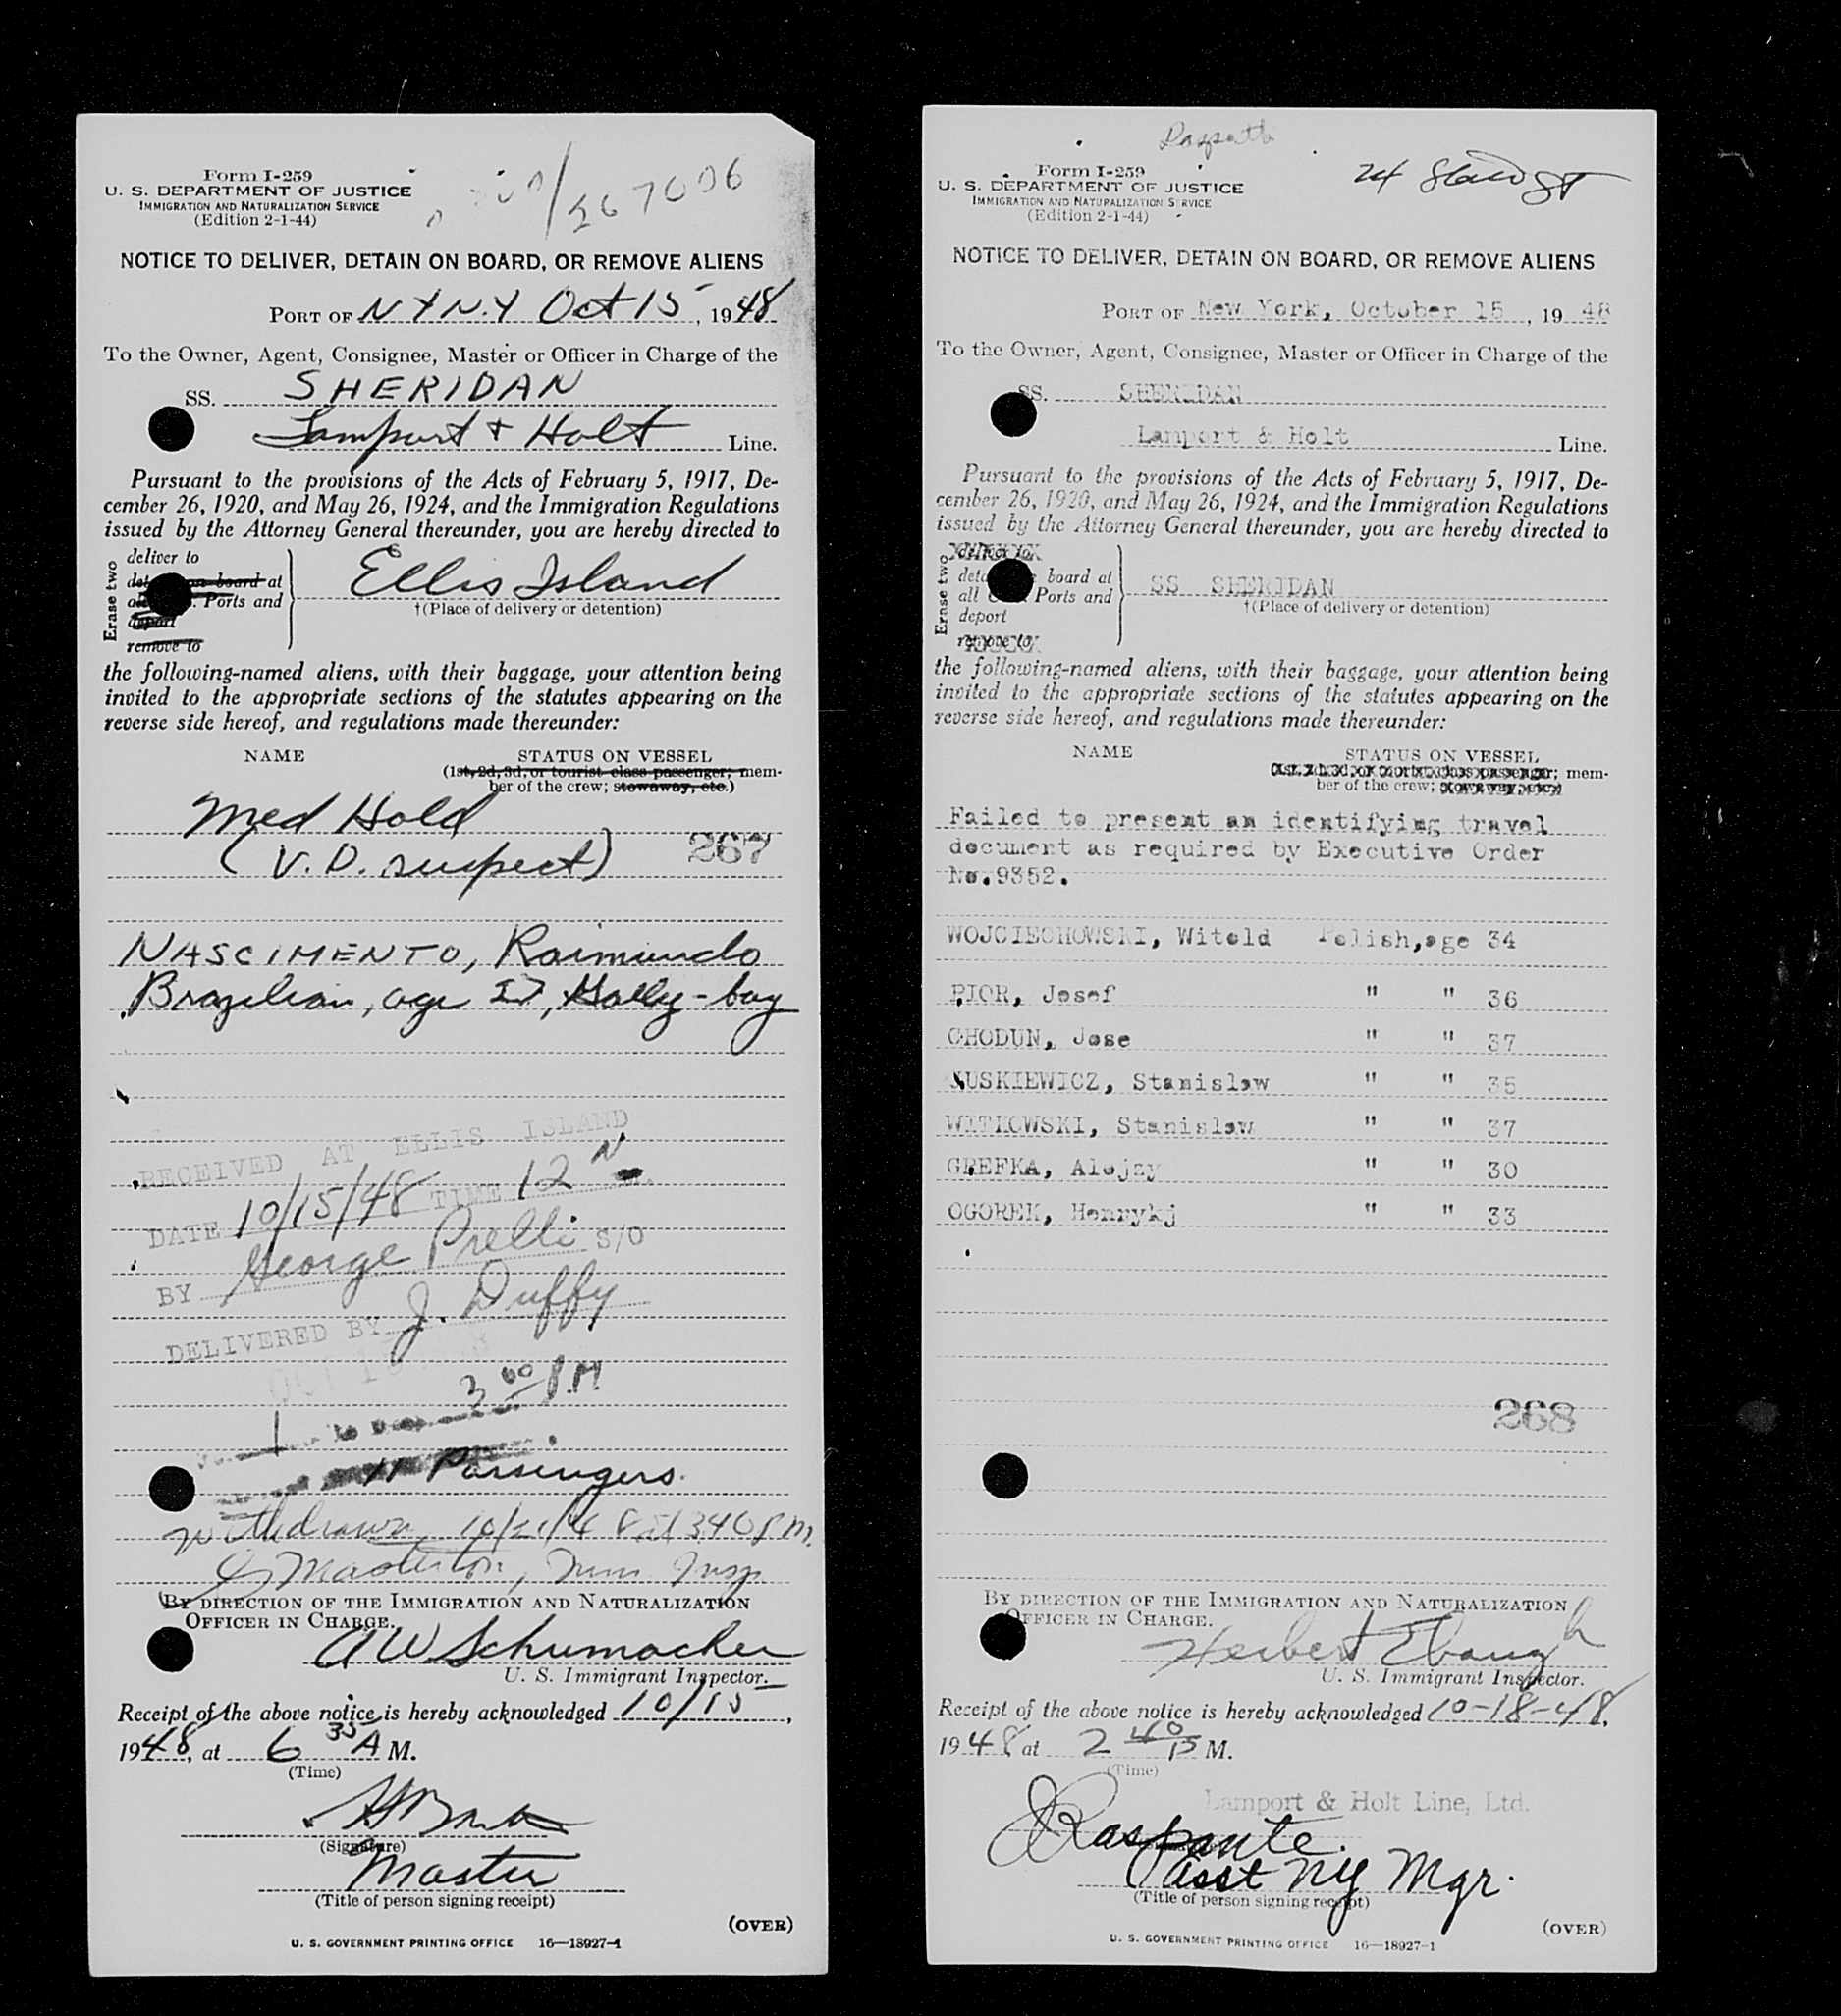 Form I-259
U. S. DEPARTMENT OF JUSTICE
IMMIGRATION AND NATURALIZATION SERVICE
(Edition 2-1-44)
NOTICE TO DELIVER, DETAIN ON BOARD, OR REMOVE ALIENS
PORT OF N Y N.Y Oct 15, 1948
To the Owner, Agent, Consignee, Master or Officer in Charge of the
SS. SHERIDAN
Lamport + Holt Line.
Pursuant to the provisions of the Acts of February 5, 1917, De-
cember 26, 1920, and May 26, 1924, and the Immigration Regulations
issued by the Attorney General thereunder, you are hereby directed to
Erase two
deliver to
board at
Ports and
remove to
Ellis Island
†(Place of delivery or detention)
the following-named aliens, with their baggage, your attention being
invited to the appropriate sections of the statutes appearing on the
reverse side hereof, and regulations made thereunder:
NAME STATUS ON VESSEL
(1st, 2d, 3d, or tourist class passenger; mem-
ber of the crew; stowaway, etc.)
Med Hold
(V. D. suspect) 267
NASCIMENTO, Raimundo
Brazilian, age Gally-boy
RECEIVED AT ELLIS ISLAND
DATE 10/15/48 TIME 12 N
BY George Prelli S/O
DELIVERED BY J. Duffy
3 00 P.M
1
11 Passengers.
Withdrawn, 340 P.M.
Masterton, Imm Insp
BY DIRECTION OF THE IMMIGRATION AND NATURALIZATION
OFFICER IN CHARGE.
A W Schumacher
U. S. Immigrant Inspector.
Receipt of the above notice is hereby acknowledged 10/15,
1948, at 6 35 A M.
(Time)
(Signature)
Master
(Title of person signing receipt)
(OVER)
U. S. GOVERNMENT PRINTING OFFICE 16—18927-1
Form I-259
U. S. DEPARTMENT OF JUSTICE
IMMIGRATION AND NATURALIZATION SERVICE
(Edition 2-1-44)
NOTICE TO DELIVER, DETAIN ON BOARD, OR REMOVE ALIENS
PORT OF New York, October 15, 1948
To the Owner, Agent, Consignee, Master or Officer in Charge of the
SS. SHERIDAN
Lamport & Holt Line.
Pursuant to the provisions of the Acts of February 5, 1917, De-
cember 26, 1920, and May 26, 1924, and the Immigration Regulations
issued by the Attorney General thereunder, you are hereby directed to
Erase two
deliver to
board at
all Ports and
deport
remove to
SS SHERIDAN
†(Place of delivery or detention)
the following-named aliens, with their baggage, your attention being
invited to the appropriate sections of the statutes appearing on the
reverse side hereof, and regulations made thereunder:
NAME STATUS ON VESSEL
(1st, 2d, 3d, or tourist class passenger; mem-
ber of the crew; stowaway, etc.)
Failed to present an identifying travel
document as required by Executive Order
No.9352.
WOJCIECHOWSKI, Witold Polish,age 34
PIOR, Josef " " 36
CHODUN, Jose " " 37
SUSKIEWICZ, Stanislaw " " 35
WETKOWSKI, Stanislaw " " 37
GREFKA, Alojzy " " 30
OGOREK, Henrykj " " 33
268
BY DIRECTION OF THE IMMIGRATION AND NATURALIZATION
OFFICER IN CHARGE.
Herbert Ebaugh
U. S. Immigrant Inspector.
Receipt of the above notice is hereby acknowledged 10-18-48,
1948 at 2 40 P M.
(Time)
Lamport & Holt Line, Ltd.
Raspante.
Asst NY Mgr.
(Title of person signing receipt)
(OVER)
U. S. GOVERNMENT PRINTING OFFICE 16—18927-1